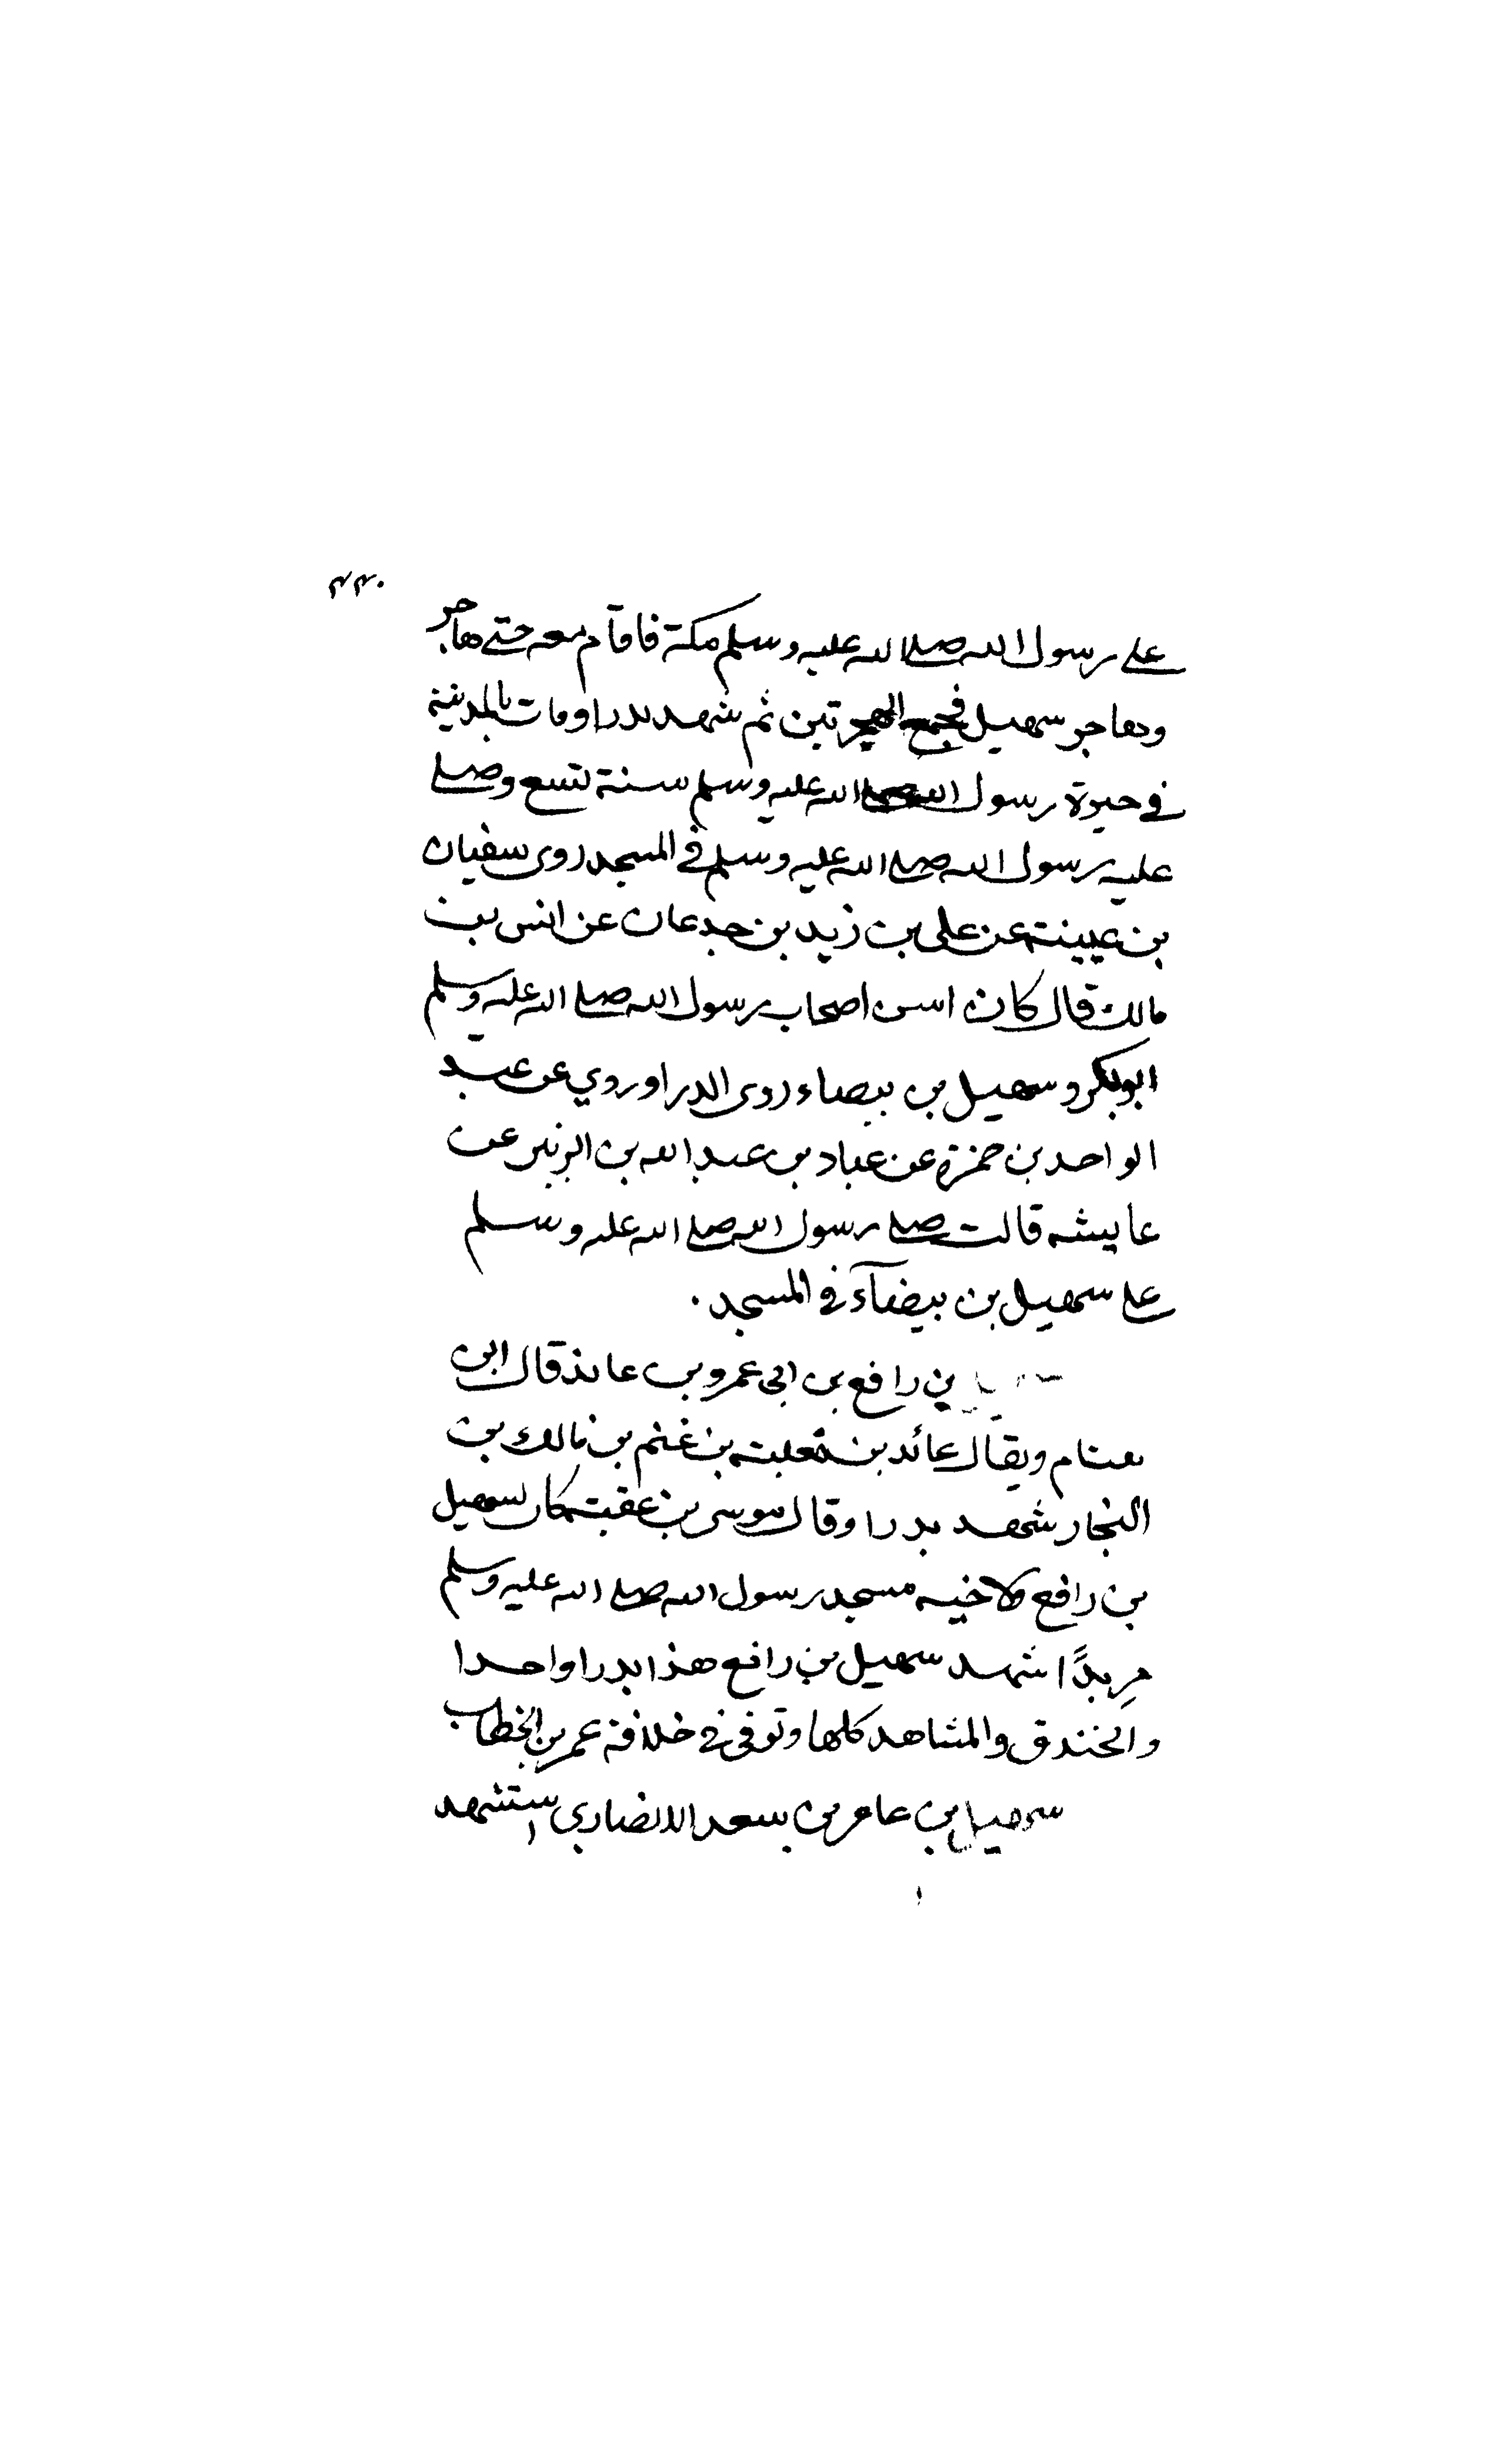 ٢٢٠
على رسول الله صلى الله عليه وسلم مكة فاقام معه حتى هاجر
وهاجر سهيل فجمع الهجرتين ثم شهد بدرا ومات بالمدينة
في حيوة رسول الله صلى الله عليه وسلم سنة تسع وصلى
عليه رسول الله صلى الله عليه وسلم في المسجد روى سفيان
بن عيينة عن على بن زيد بن جدعان عن انس بن
مالك قال كان اسن اصحاب رسول الله صلى الله عليه وسلم
ابو بكر وسهيل بن بيضاء روى الدراوردي عن عبد
الواحد بن حمزة عن عباد بن عبد الله بن الزبير عن
عايشه قالت صلى رسول الله صلى الله عليه وسلم
على سهيل بن بيضآء في المسجد.
بن رافع بن ابى عمرو بن عائذ قال ابن
هشام ويقال عائد بن ثعلبة بن غنم بن مالك بن
النجار شهد بدرا وقال موسى بن عقبة كان لسهيل
بن رافع ولاخيه مسجد رسول الله صلى الله عليه وسلم
مِربدًا شهد سهيل بن رافع هذا بدرا واحدا
والخندق والمشاهد كلها وتوفى في خلافة عمر بن الخطاب
سهيل بن عامر بن سعد الانصاري استشهد